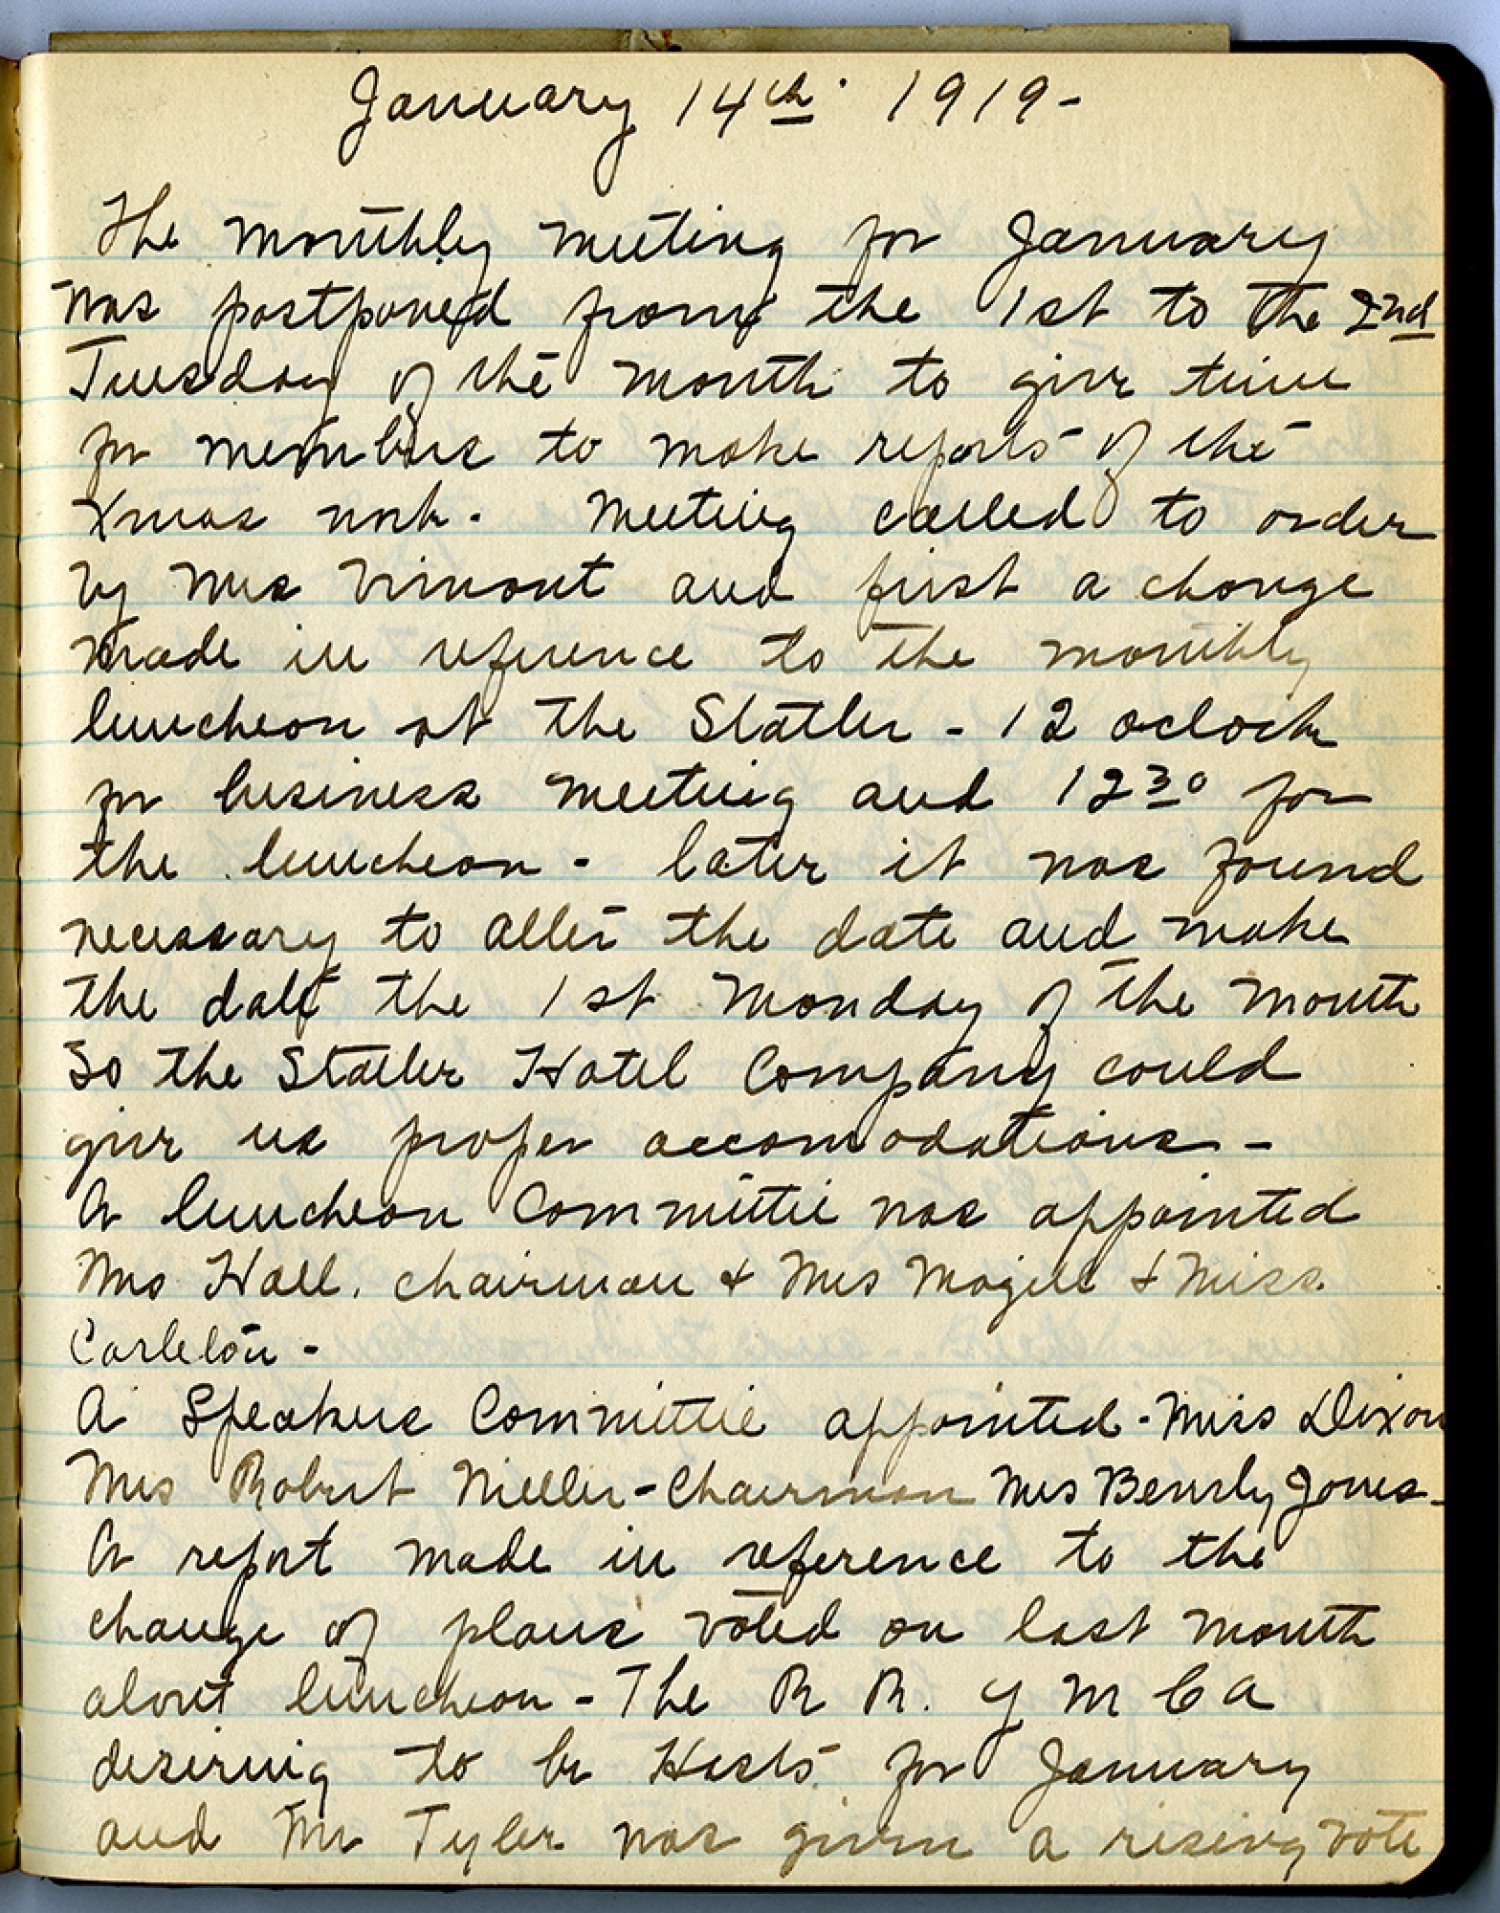 January 14th. 1919-
The monthly meeting for January
was postponed from the 1st to the 2nd
Tuesday of the month to give time
for members to make reports of the
Xmas work. Meeting called to order
by Mrs Vimont and first a change
made in reference to the monthly
luncheon at the Statler - 12 oclock
for business meeting and 12 30 for
the luncheon - later it was found
necessary to alter the date and make
the date the 1st Monday of the month
So the Statler Hotel Company could
give us proper accomodations -
A luncheon Committee was appointed
Mrs Hall. chairman & Mrs Magill & Miss
Carleton -
A Speakers Committee appointed - Miss Dixon
Mrs Robert Miller - Chairman Mrs Beverly Jones -
A report made in reference to the
change of plans voted on last month
about luncheon - The R R. Y M C A
desiring to be Hosts for January
and Mr Tyler was given a rising vote